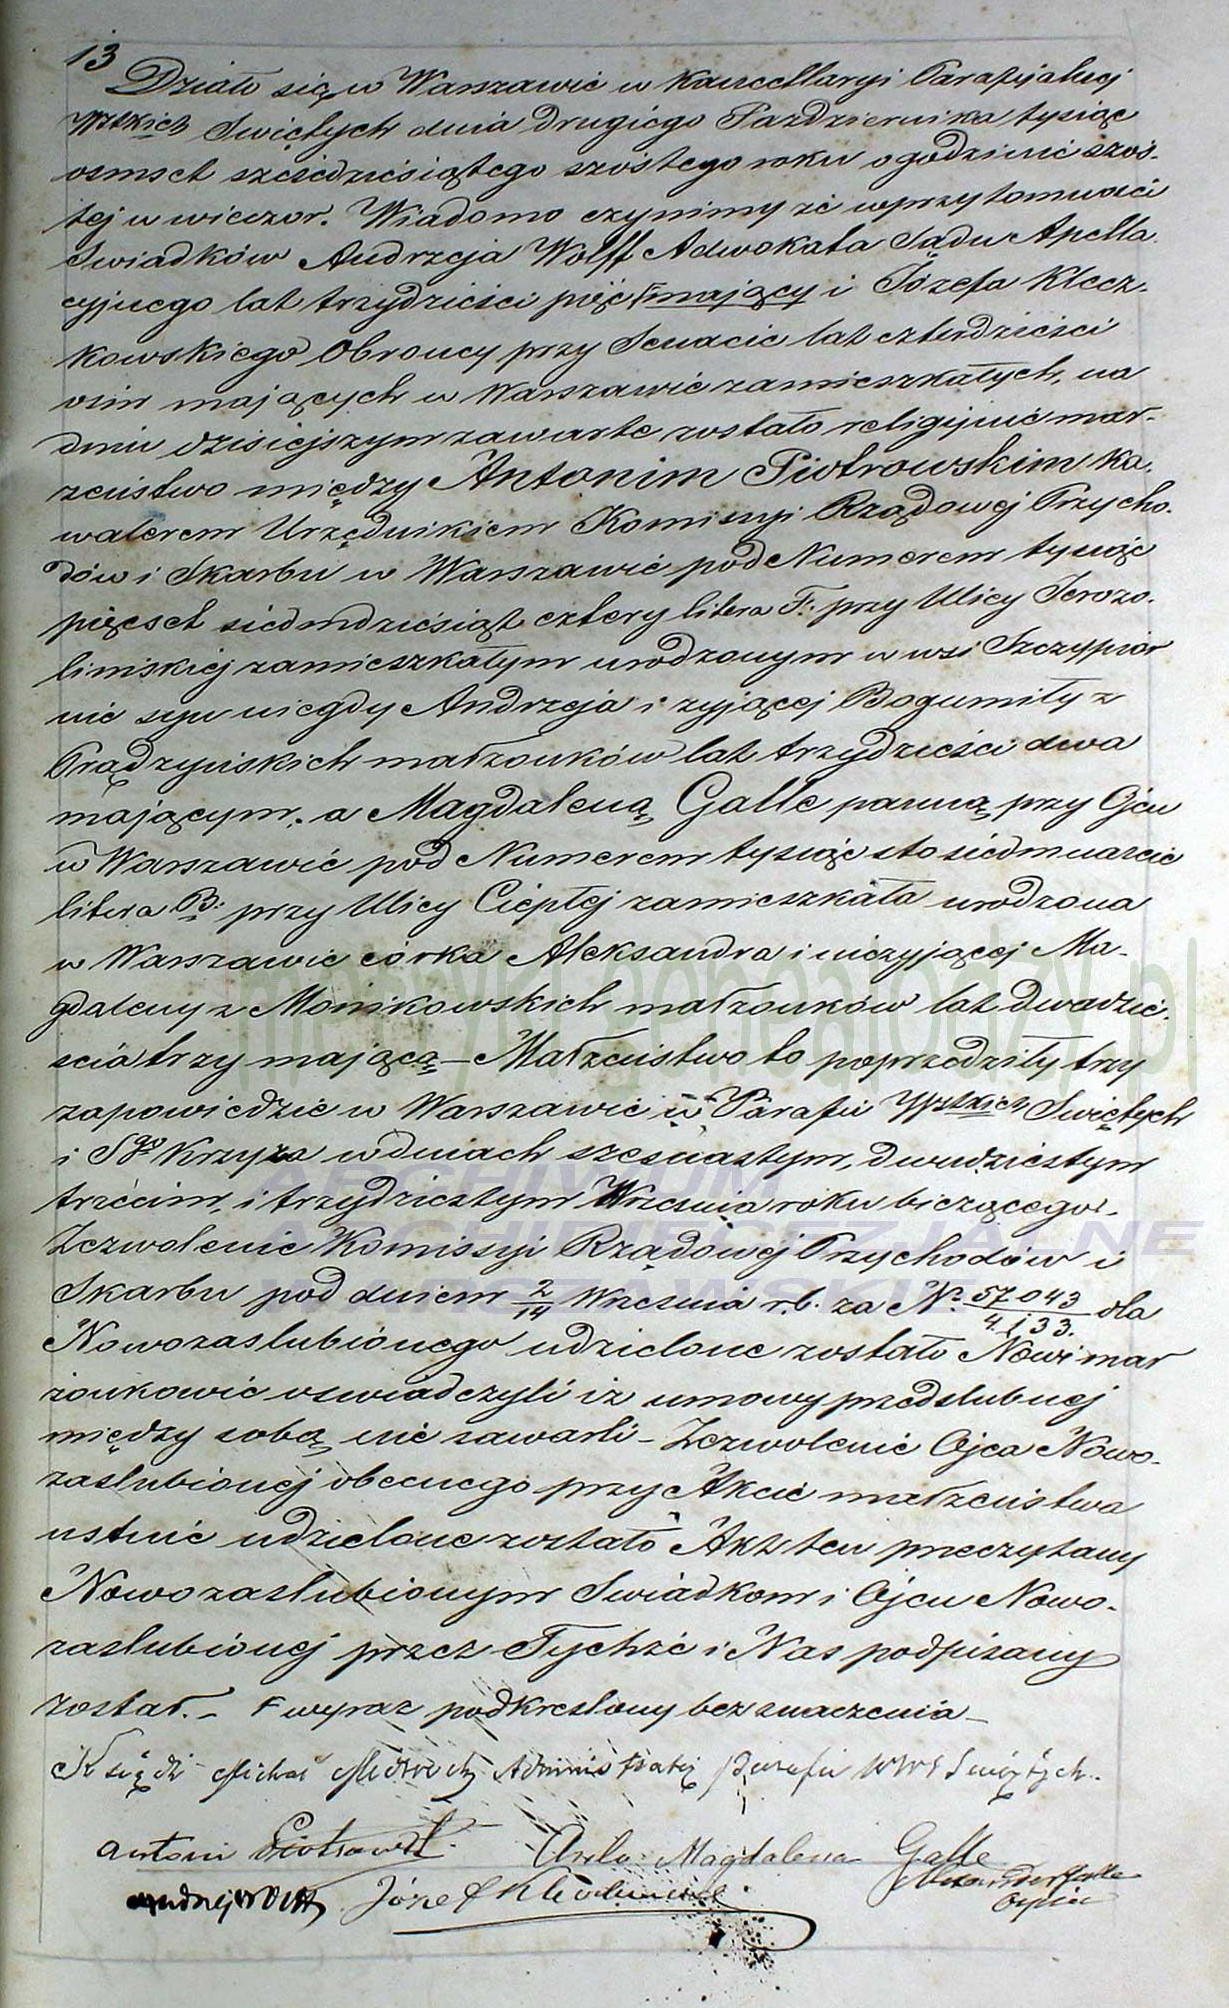 13
Działo się w Warszawie w Kancellaryi Parafijalnej
Wstkich Swiętych dnia drugiego Pazdziernika tysiąc
osmset szescdziesiątego szostego roku o godzinie szos-
tej w wieczor. Wiadomo czynimy ze w przytomnosci
Swiadków Andrzeja Wolff Adwokata Sądu Apella
cyjnego lat trzydziesci pięć F mający i Józefa Klecz-
kowskiego Obroncy przy Senacie lat czterdziesci
osm mających w Warszawie zamieszkałych, na
dniu dzisiejszym zawarte zostało religijne mał-
zenstwo między Antonim Piotrowskim ka-
walerem Urzędnikiem Komissyi Rządowej Przycho-
dów i Skarbu w Warszawie pod Numerem tysiąc
pięcset siedmdziesiąt cztery litera F: przy Ulicy Jerozo-
limskiej zamieszkałym urodzonym w wsi Szczypior
nie syn niegdy Andrzeja i zyjącej Bogumiły z
Prądzyńskich małzonków lat trzydziesci dwa
mającym, a Magdaleną Galle panną przy Ojcu
w Warszawie pod Numerem tysiąc sto siedmnascie
litera B: przy Ulicy Ciepłej zamieszkała urodzona
w Warszawie córka Aleksandra i niezyjącej Ma-
gdaleny z Mońkowskich małzonków lat dwadzie-
scia trzy mającą – Małzenstwo to poprzedziły trzy
zapowiedzie w Warszawie w Parafii Wstkich Swiętych
i Sgo Krzyza w dniach szesnastym, dwudziestym
trzecim, i trzydziestym Wrzesnia roku biezącego.
Zezwolenie Komissyi Rządowej Przychodów i
Skarbu pod dniem 2/14 Wrzesnia r. b. za No 57043/4133. dla
Nowozaslubionego udzielone zostało Nowi mał
zonkowie oswiadczyli iz umowy przedslubnej
między sobą nie zawarli – Zezwolenie Ojca Nowo-
zaslubionej obecnego przy Akcie małzenstwa
ustnie udzielone zostało Akt ten przeczytany
Nowozaslubionym Swiadkom i Ojcu Nowo-
zaslubionej przez Tychze i Nas podpisany
został. – F wyraz podkreslony bez znaczenia –
Ksiądz Michał Administrator Parafii WW Swiętych.
Antoni Piotrowski. Magdalena Galle
Andrzej Wolff Józef Kleczkowski Alexander Galle
ojciec
metryki.genealodzy.pl
ARCHIWUM
ARCHIDIECEZJALNE
WARSZAWSKIE